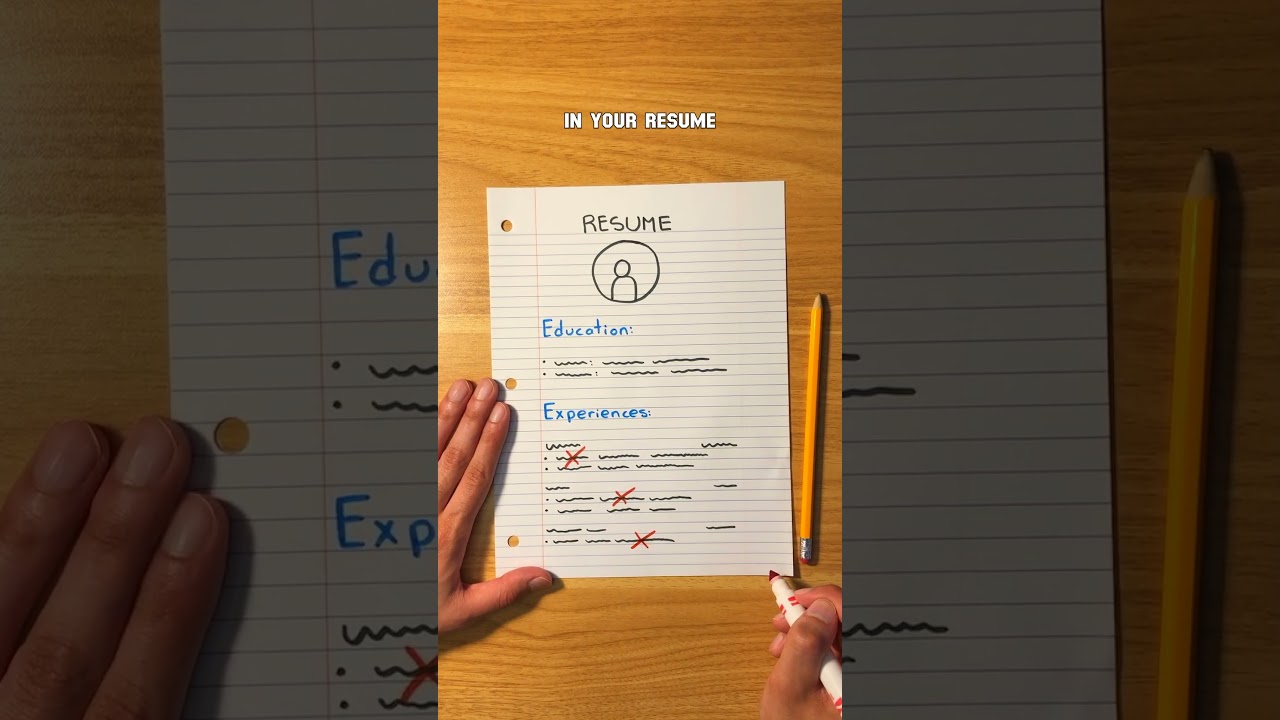 IN YOUR RESUME
RESUME
Education:
Experiences:
Edu
Exp